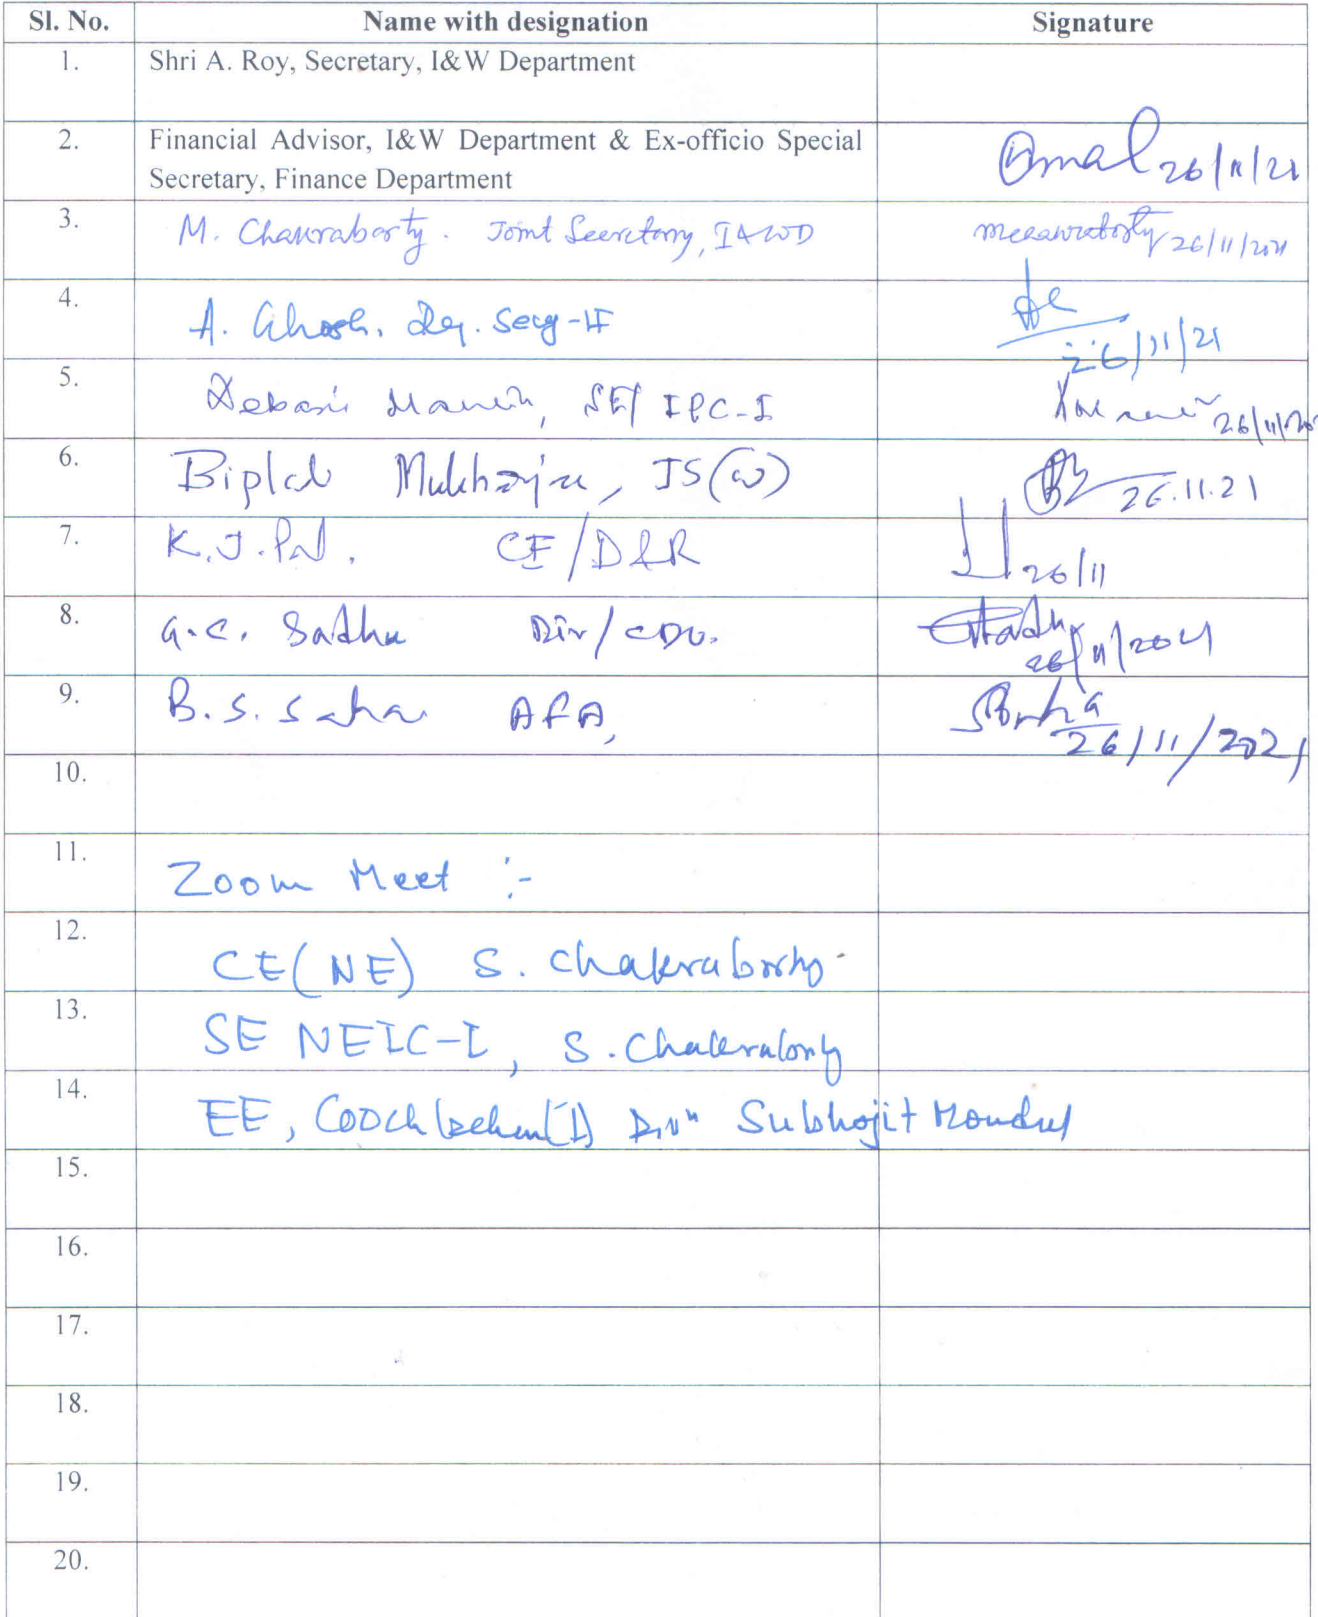 Sl. No. Name with designation Signature
1. Shri A. Roy, Secretary, I&W Department
2. Financial Advisor, I&W Department & Ex-officio Special
Secretary, Finance Department 26/11/21
3. M. Chakraborty. Joint Secretary, I&WD mchakraborty 26/11/2021
4. A. Ghosh. Dy. Secy-IF
26/11/21
5. Debasis SE/ IPC-I 26/11/
6. Biplab Mukherjee, JS(W) 26.11.21
7. K.J. Pal. CE/D&R 26/11
8. G.C. Sadhu Dir/CDO. 26/11/2021
9. B.S. Saha AFA, 26/11/2021
10.
11. Zoom Meet :-
12. CE(NE) S. Chakraborty
13. SE NEIC-I, S. Chakraborty
14. EE, Coochbehar(I) Divn Subhojit Mondal
15.
16.
17.
18.
19.
20.